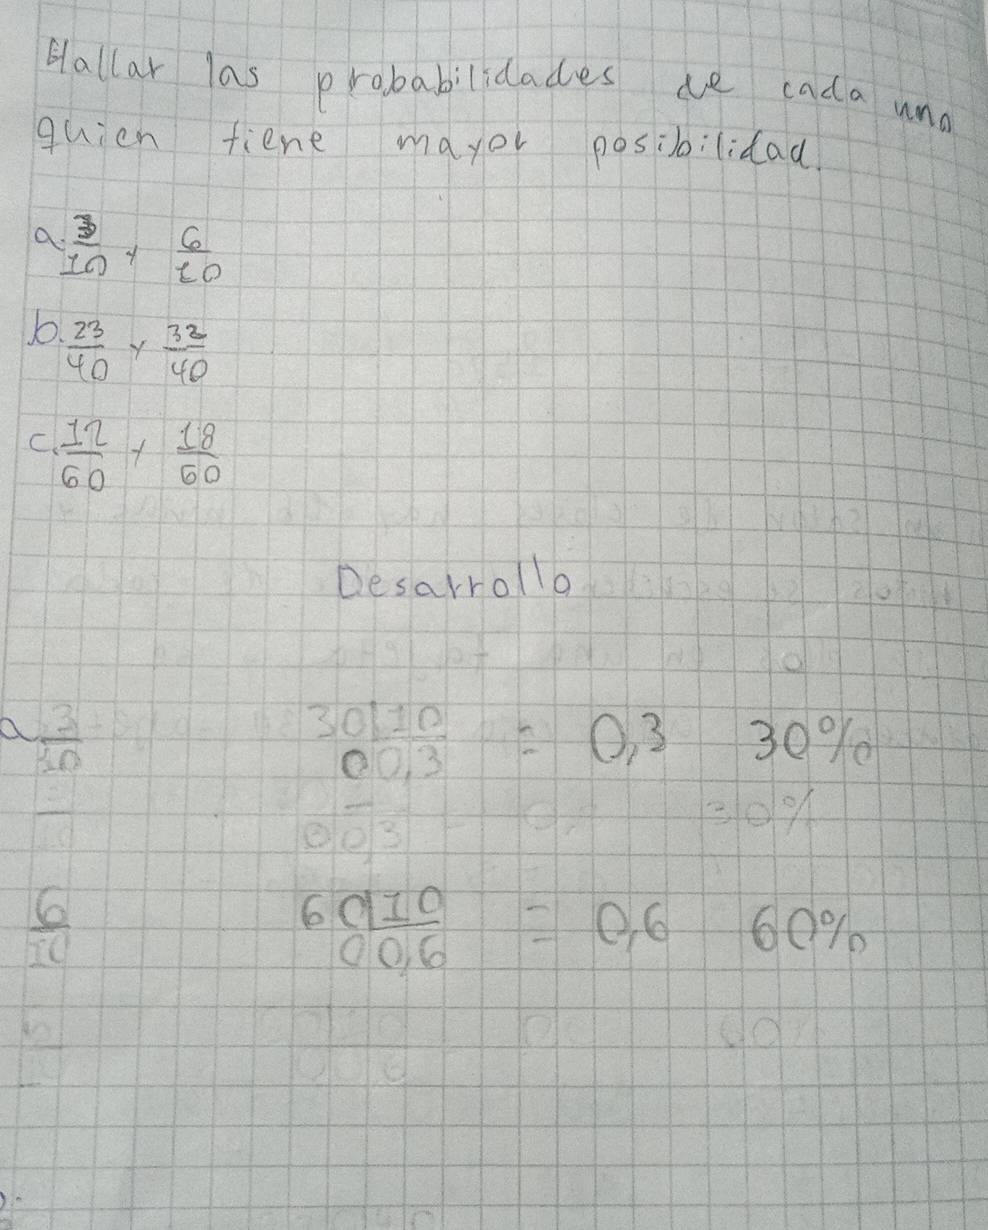 Hallar las probabilidades de cada uno
quien tiene mayor posibilidad.
a. 3/10 y 6/10
b. 23/40 y 32/40
c. 12/60 y 18/60
Desarrollo
a 3/10 30|10 = 0,3 30%
00,3
6/10 60|10 = 0,6 60%
00,6